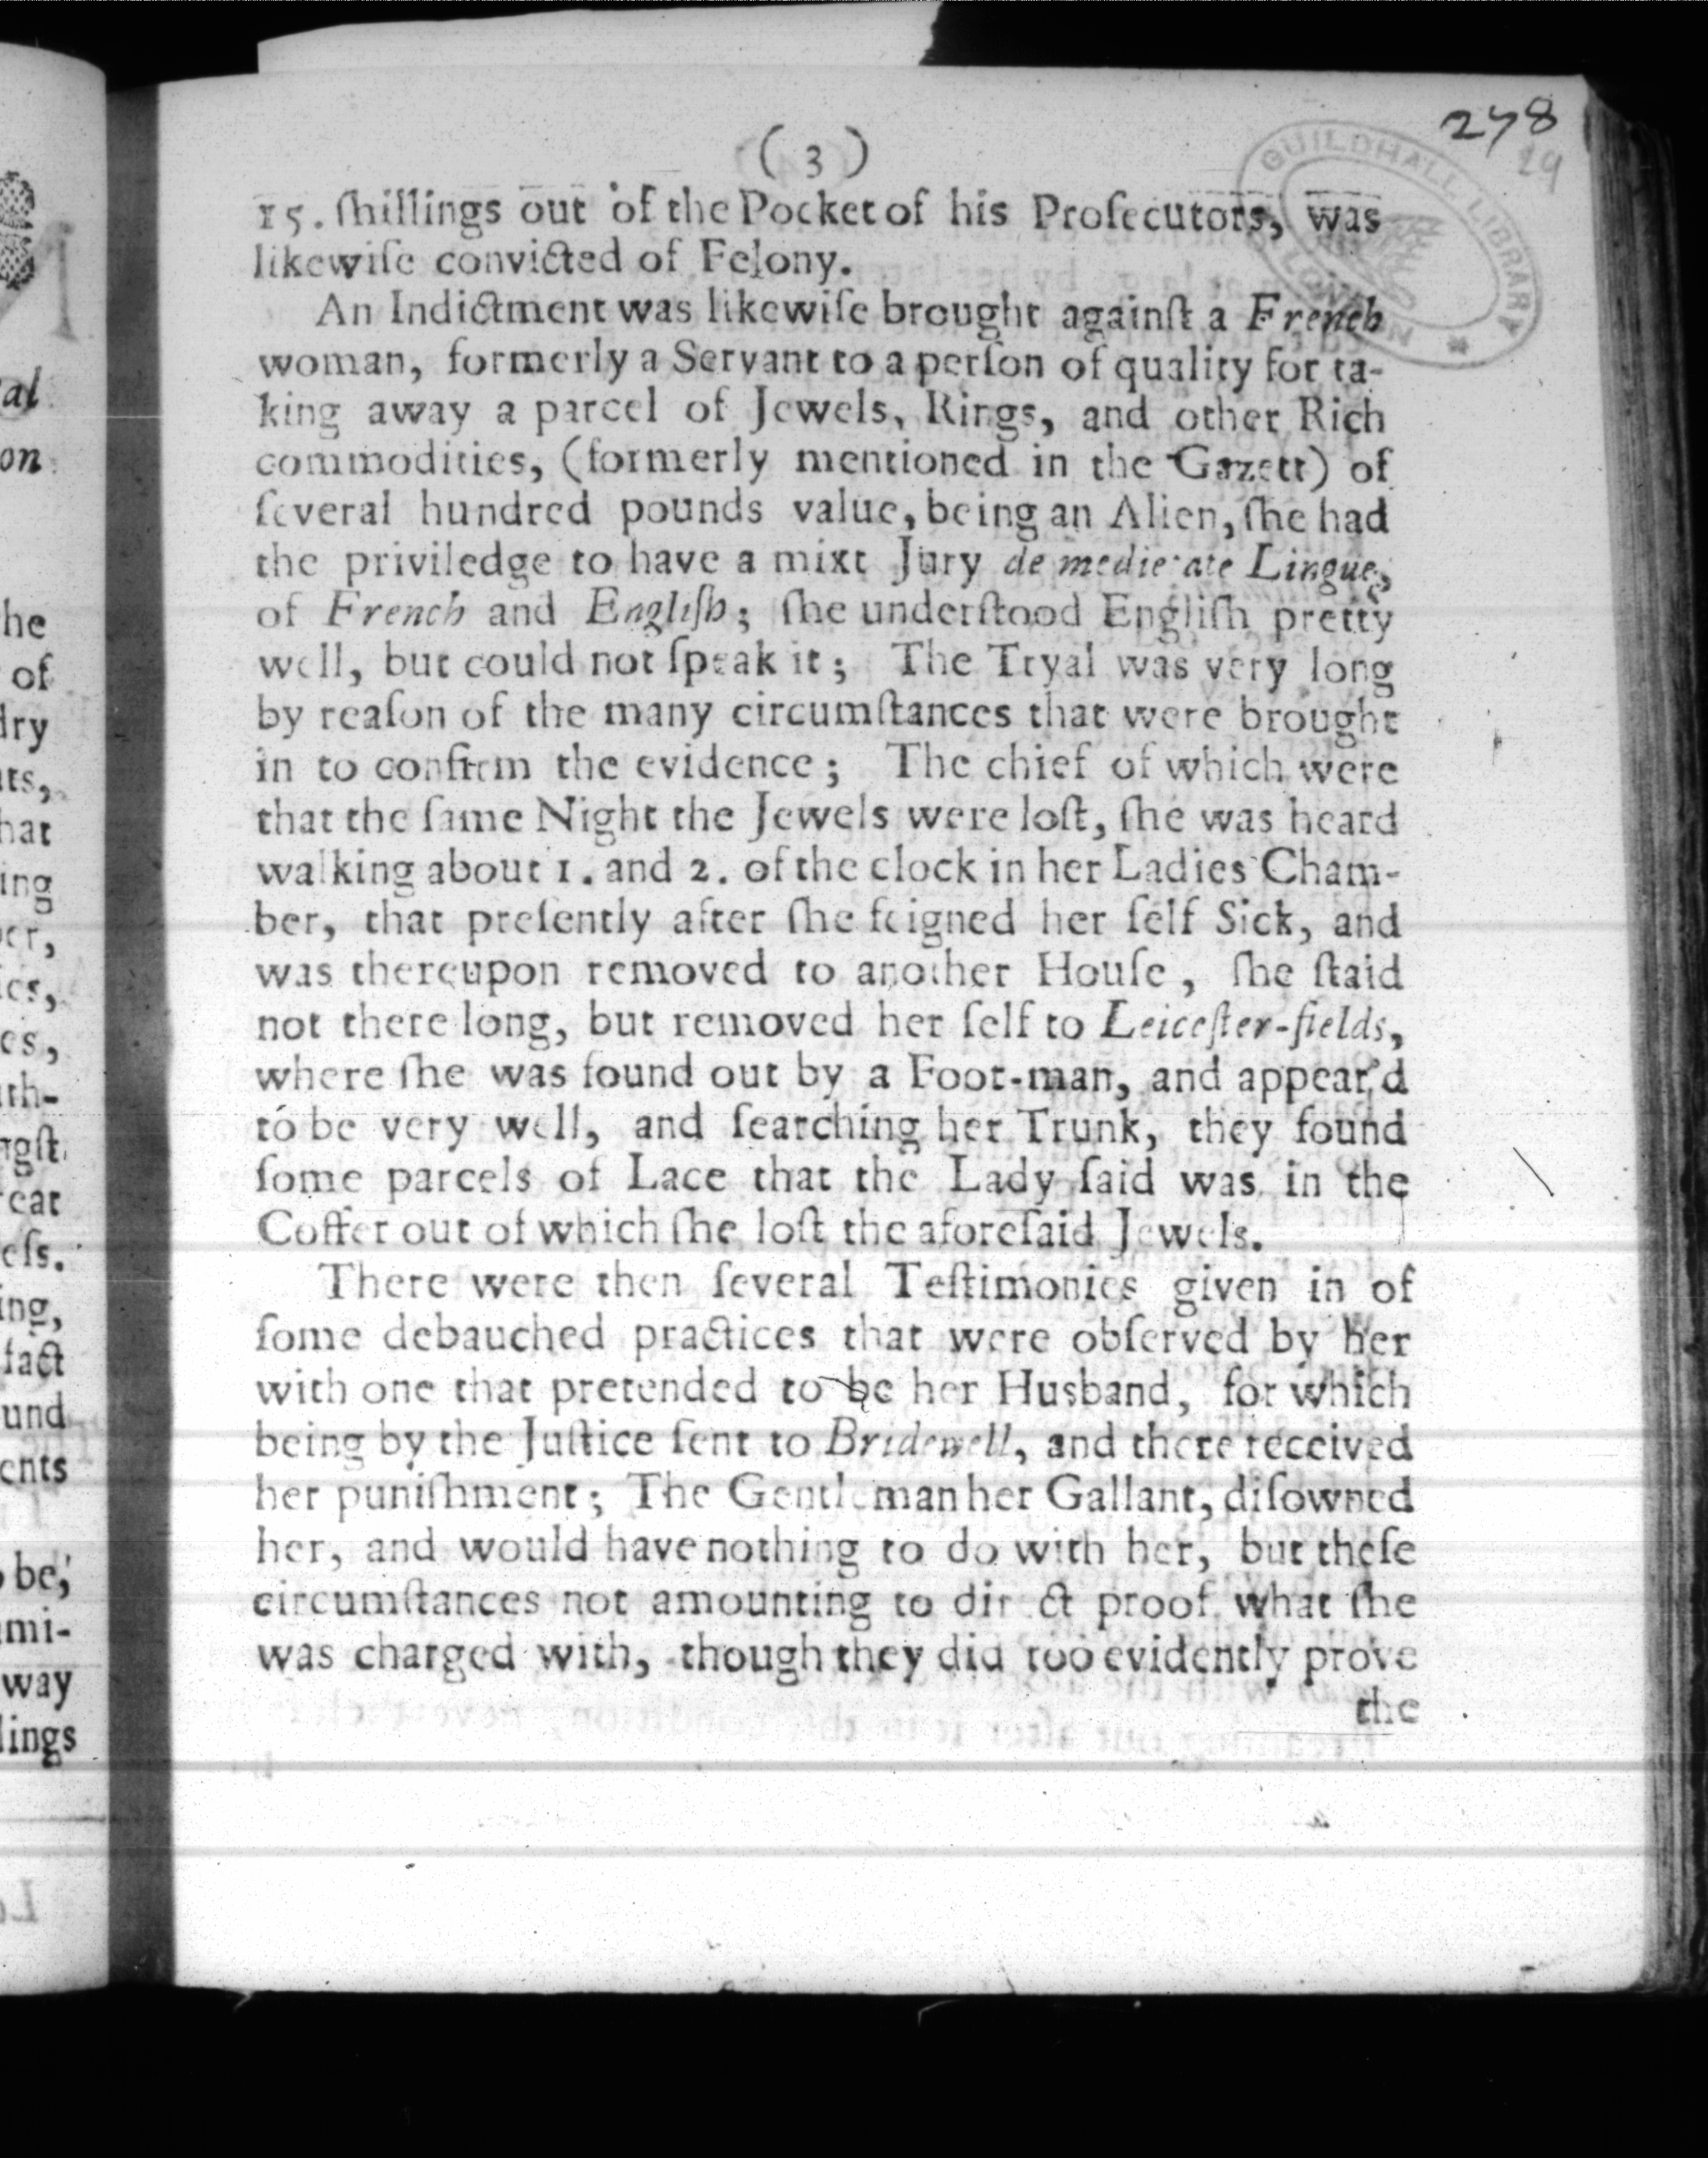 278
29
GUILDHALL LIBRARY
LONDON
( 3 )
15. ſhillings out of the Pocket of his Proſecutors, was
likewiſe convicted of Felony.
An Indictment was likewiſe brought againſt a French
woman, formerly a Servant to a perſon of quality for ta-
king away a parcel of Jewels, Rings, and other Rich
commodities, (formerly mentioned in the Gazett) of
ſeveral hundred pounds value, being an Alien, ſhe had
the priviledge to have a mixt Jury de medietate Lingue,
of French and Engliſh; ſhe underſtood Engliſh pretty
well, but could not ſpeak it; The Tryal was very long
by reaſon of the many circumſtances that were brought
in to confirm the evidence; The chief of which were
that the ſame Night the Jewels were loſt, ſhe was heard
walking about 1. and 2. of the clock in her Ladies Cham-
ber, that preſently after ſhe feigned her ſelf Sick, and
was thereupon removed to another Houſe, ſhe ſtaid
not there long, but removed her ſelf to Leiceſter-fields,
where ſhe was found out by a Foot-man, and appear'd
to be very well, and ſearching her Trunk, they found
ſome parcels of Lace that the Lady ſaid was in the
Coffer out of which ſhe loſt the aforeſaid Jewels.
There were then ſeveral Teſtimonies given in of
ſome debauched practices that were obſerved by her
with one that pretended to be her Husband, for which
being by the Juſtice ſent to Bridewell, and there received
her puniſhment; The Gentleman her Gallant, diſowned
her, and would have nothing to do with her, but theſe
circumſtances not amounting to dir ct proof what ſhe
was charged with, though they did too evidently prove
the